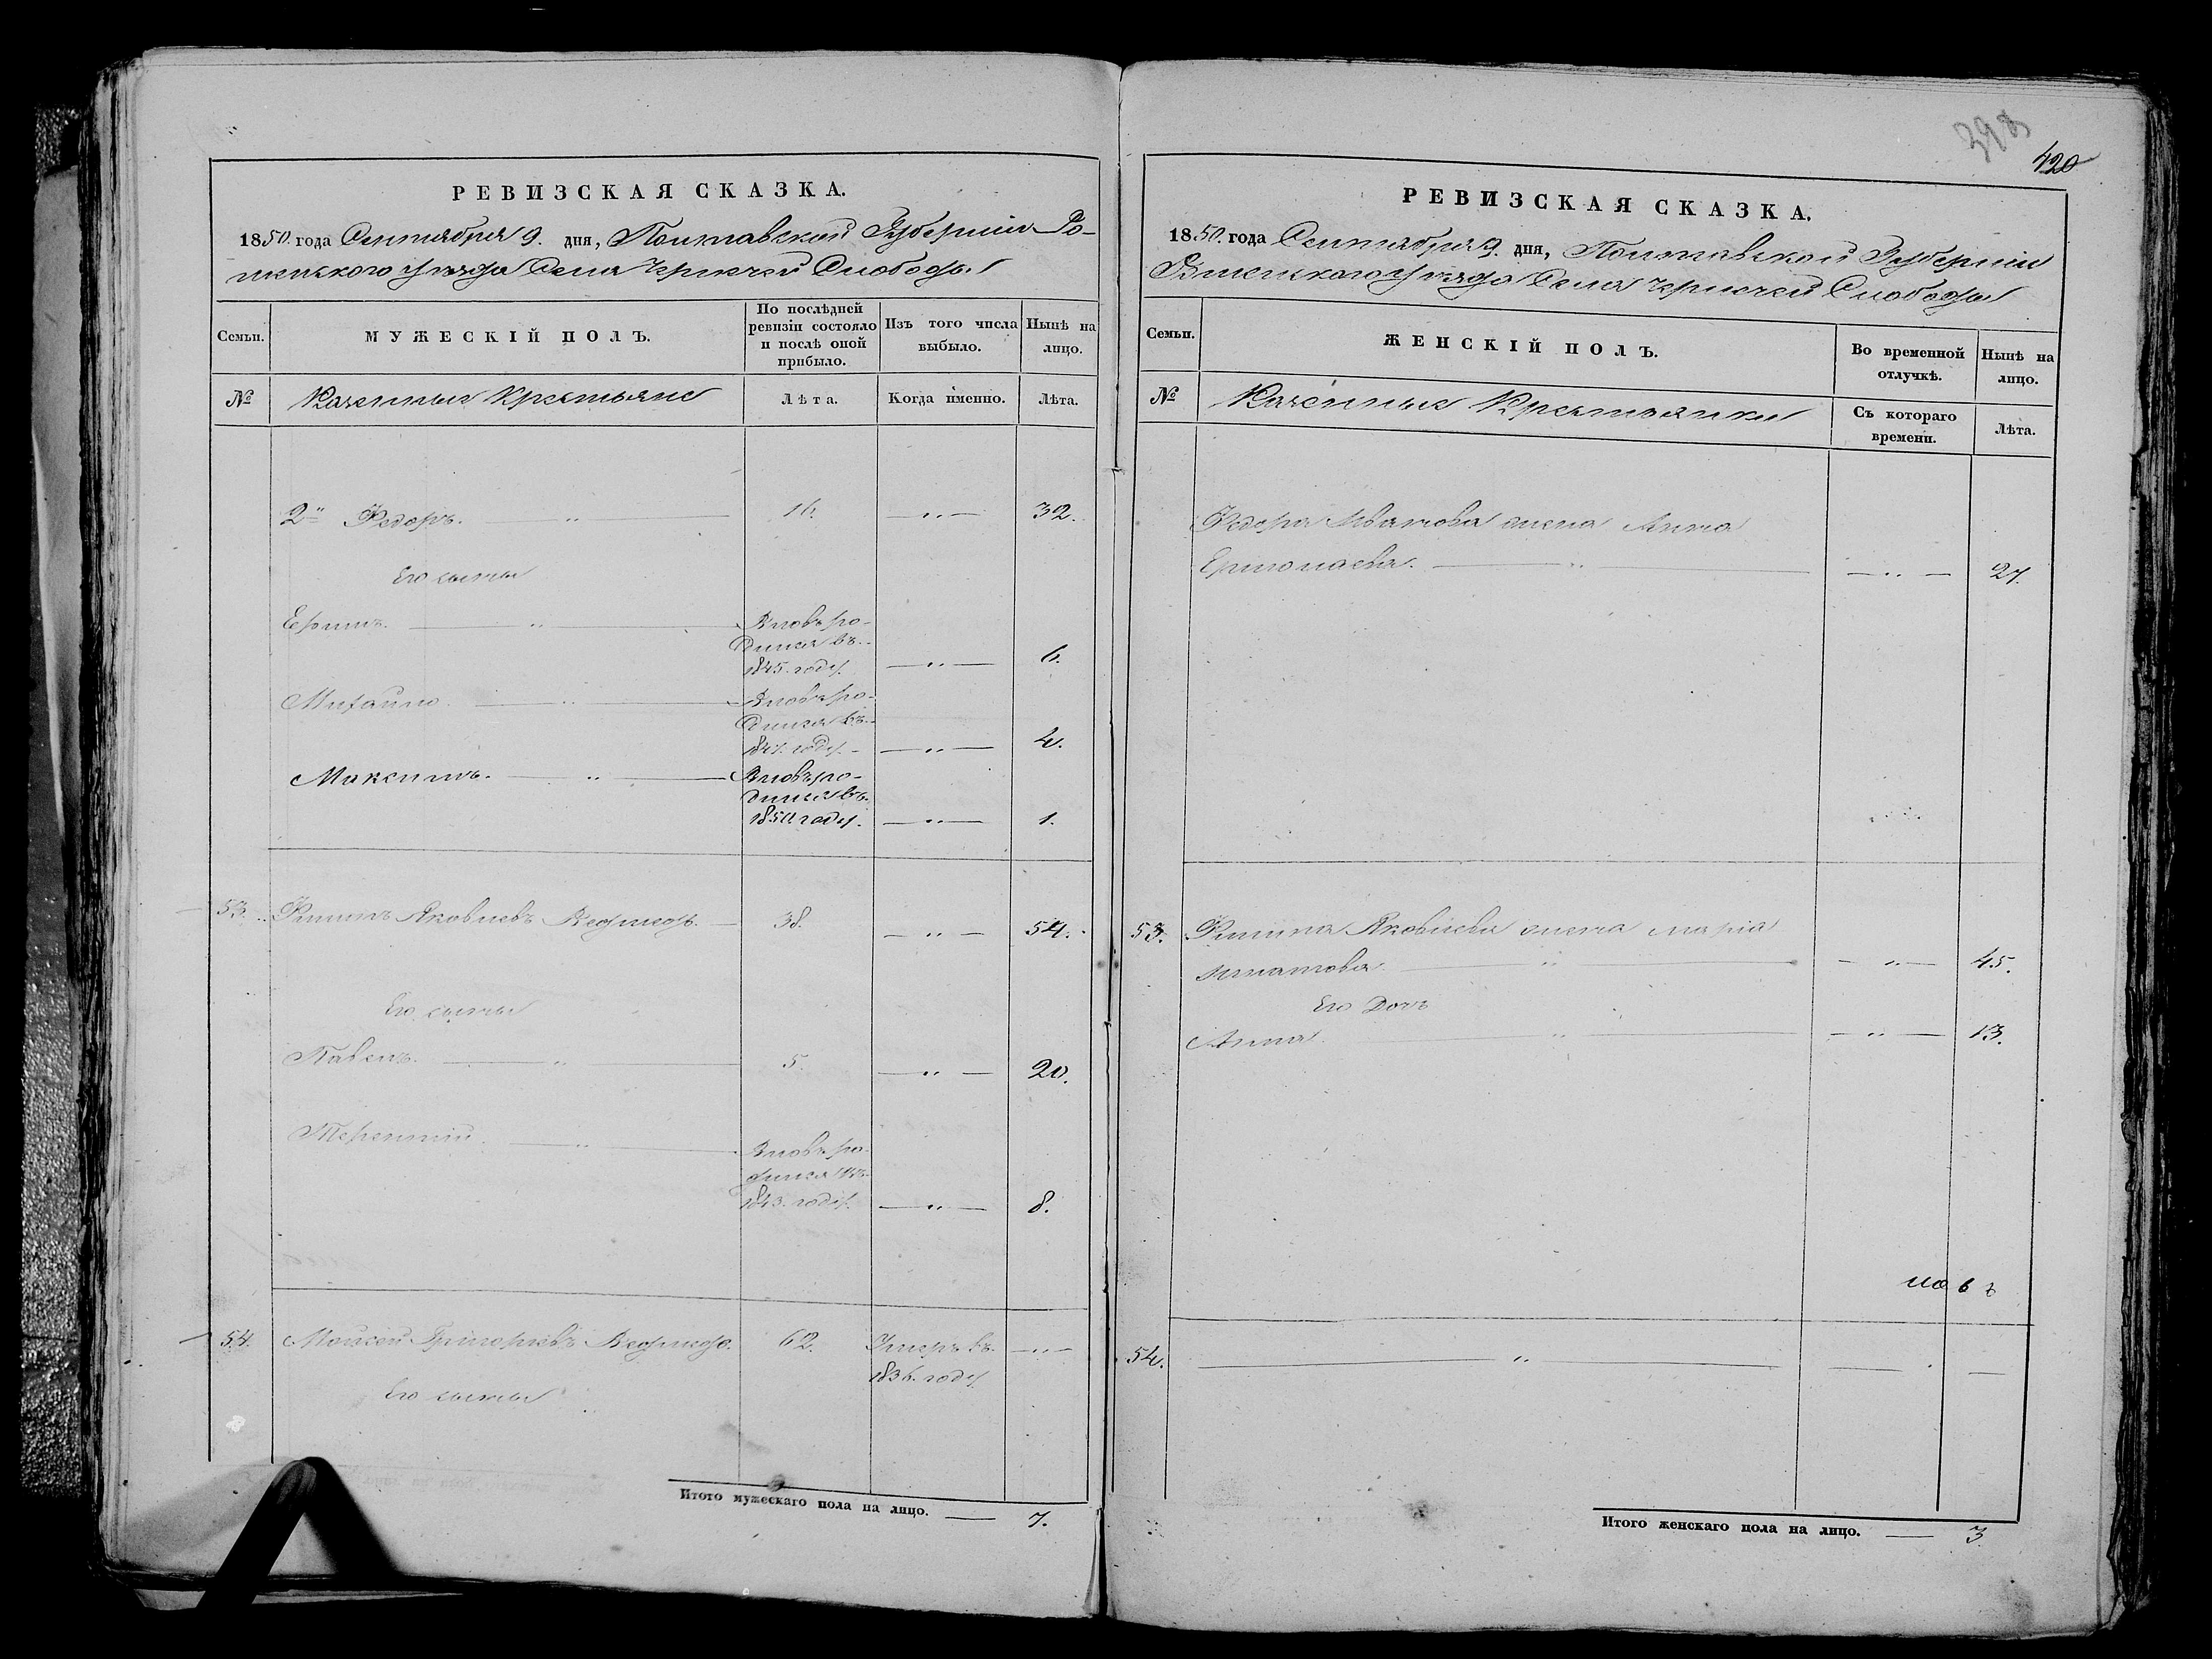 РЕВИЗСКАЯ СКАЗКА.
1850. года Сентября 9. дня, Полтавской Губерніи Ро-
менского уезда Села Чернечей Слободы
Семьи.
МУЖЕСКІЙ ПОЛЪ.
По послѣдней ревизіи состояло и послѣ оной прибыло.
Изъ того числа выбыло.
Нынѣ на лицо.
№
Казенные Крестьяне
Лѣта.
Когда именно.
Лѣта.
2й Федоръ. — " — 16. — " — 32.
Его сыны
Вновь ро-
дился въ
1845. году. — " — 6.
Михайло. — " — Вновь ро-
дился въ
1847. году. — " — 4.
Максимъ. — " — Вновь ро-
дился въ
1850. году. — " — 1.
53. Яковлевъ 38. — " — 54.
Его сыны
Павелъ. — " — 5. — " — 20.
Терентій. — " — Вновь ро-
дился въ
1843. году. — " — 8.
54. Моисей Григорьевъ 62. Умеръ въ — " —
1836. году
Его сыны
Итого мужескаго пола на лицо. — 7.
398
420
РЕВИЗСКАЯ СКАЗКА.
1850. года Сентября 9. дня, Полтавской Губерніи
Роменского уезда Села Чернечей Слободы
Семьи.
ЖЕНСКІЙ ПОЛЪ.
Во временной отлучкѣ.
Нынѣ на лицо.
№
Казенные Крестьянки
Съ котораго времени.
Лѣта.
Федора Иванова жена Анна
Ермолаева. — " — — " — 27.
53. Яковлева жена Марія
Игнатова. — " — — " — 45.
Его Дочь
Анна. — " — — " — 13.
54. — " — — —
Итого женскаго пола на лицо. — 3